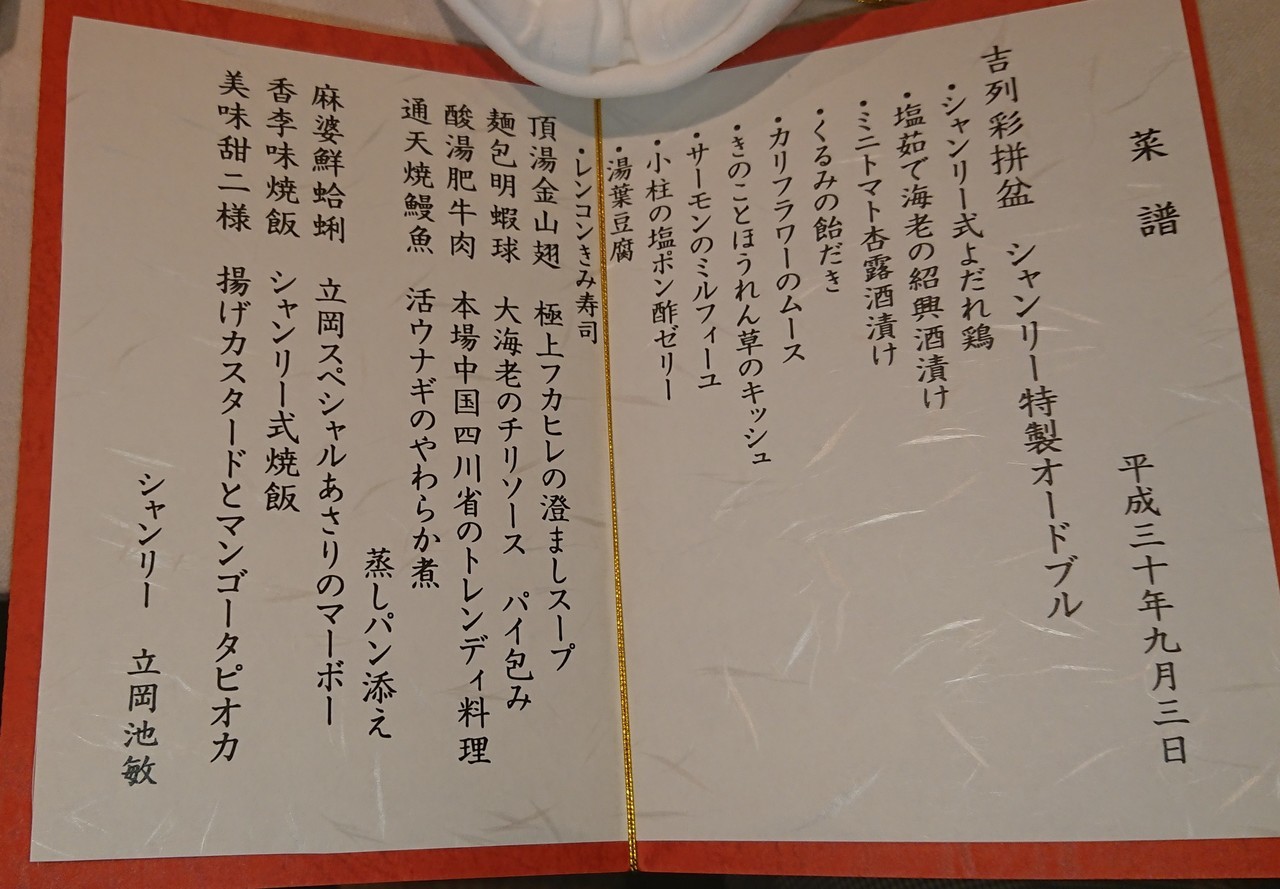 菜譜　平成三十年九月三日
吉列彩拼盆　シャンリー特製オードブル
・シャンリー式よだれ鶏
・塩茹で海老の紹興酒漬け
・ミニトマト杏露酒漬け
・くるみの飴だき
・カリフラワーのムース
・きのことほうれん草のキッシュ
・サーモンのミルフィーユ
・小柱の塩ポン酢ゼリー
・湯葉豆腐
・レンコンきみ寿司
頂湯金山翅　極上フカヒレの澄ましスープ
麺包明蝦球　大海老のチリソース　パイ包み
酸湯肥牛肉　本場中国四川省のトレンディ料理
通天焼鰻魚　活ウナギのやわらか煮
蒸しパン添え
麻婆鮮蛤蜊　立岡スペシャルあさりのマーボー
香李味焼飯　シャンリー式焼飯
美味甜二様　揚げカスタードとマンゴータピオカ
シャンリー　立岡池敏